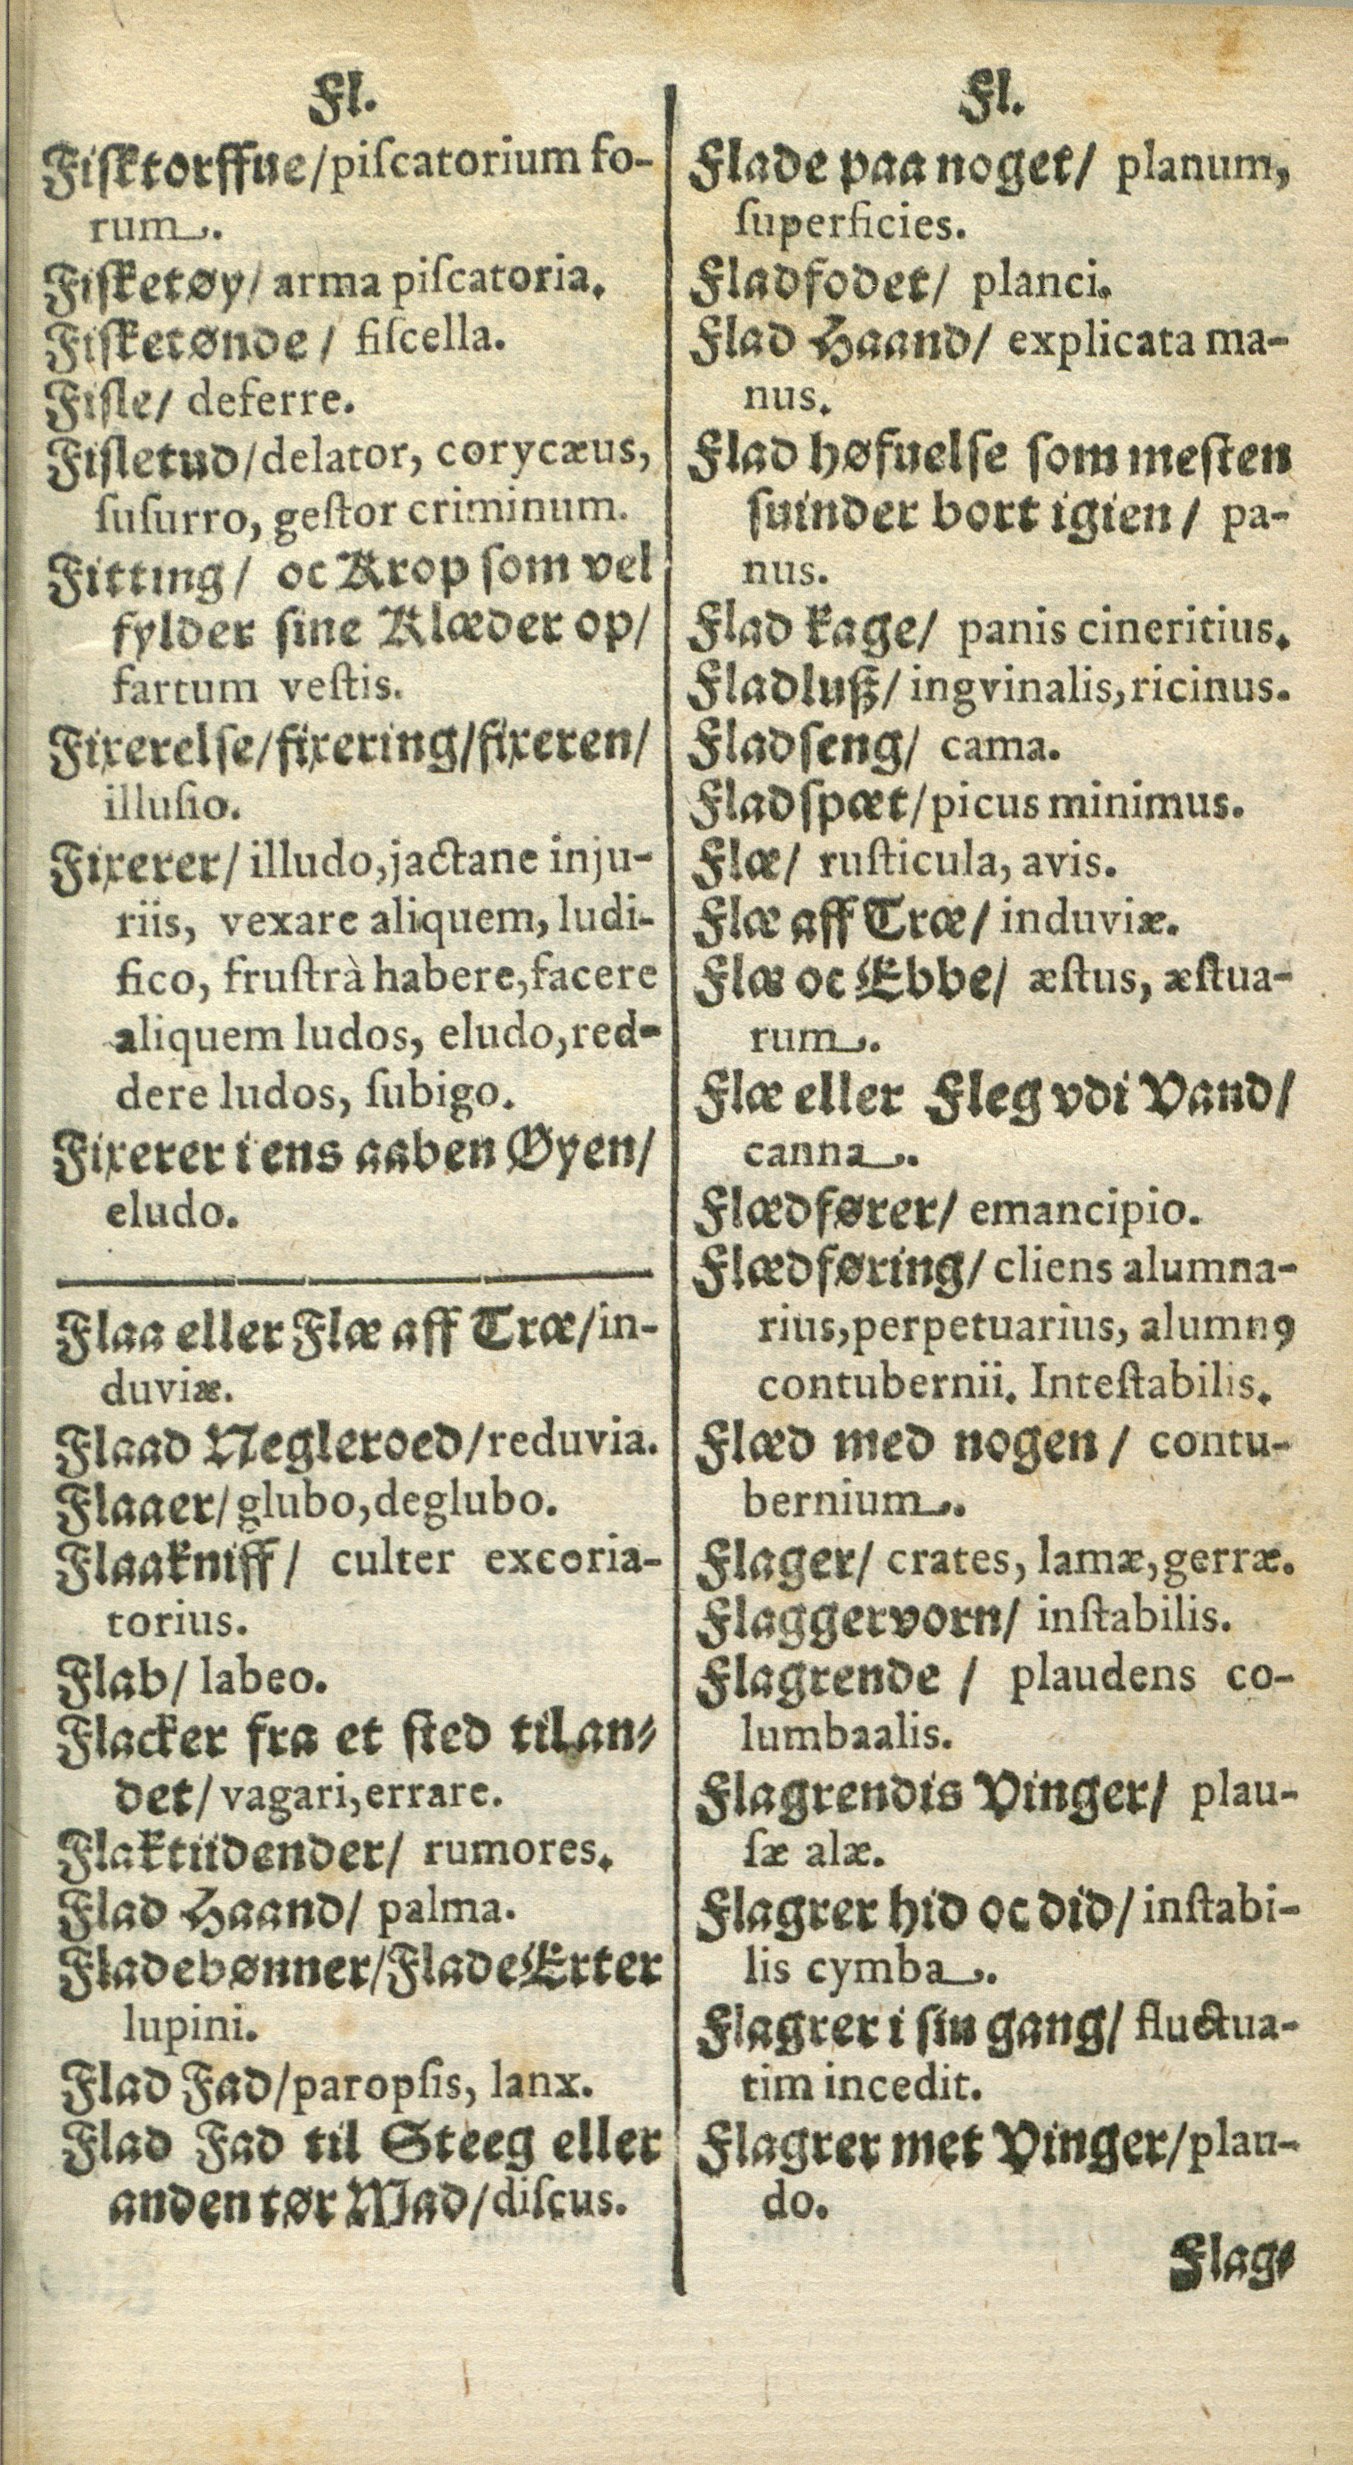 Fl.
Fisktorffue/piſcatorium fo-
rum.
Fisketøy/ arma piſcatoria.
Fisketønde/ fiſcella.
Fisle/ deferre.
Fisletud/delator, corycæus,
ſuſurro, geſtor criminum.
Fitting/ oc Krop ſom vel
fylder ſine Klæder op/
fartum veſtis.
Fixerelſe/fixering/fixeren/
illuſio.
Fixerer/ illudo,jactane inju-
riis, vexare aliquem, ludi-
fico, fruſtrà habere,facere
aliquem ludos, eludo,red-
dere ludos, ſubigo.
Fixerer i ens aaben Øyen/
eludo.
Flaa eller Flæ aff Træ/in-
duviæ.
Flaad Negleroed/reduvia.
Flaaer/glubo,deglubo.
Flaakniff/ culter excoria-
torius.
Flab/ labeo.
Flacker fra et ſted til an-
det/ vagari,errare.
Flaktiidender/ rumores.
Flad Haand/ palma.
Fladebønner/Flade Erter
lupini.
Flad Fad/paropſis, lanx.
Flad Fad til Steeg eller
anden tør Mad/diſcus.
Fl.
Flade paa noget/ planum,
ſuperficies.
Fladfodet/ planci.
Flad Haand/ explicata ma-
nus.
Flad høfuelſe ſom meſten
ſuinder bort igien/ pa-
nus.
Flad kage/ panis cineritius.
Fladluß/ ingvinalis,ricinus.
Fladſeng/ cama.
Fladſpæt/picus minimus.
Flæ/ ruſticula, avis.
Flæ aff Træ/ induviæ.
Flæ oc Ebbe/ æſtus, æſtua-
rum.
Flæ eller Fleg vdi Vand/
canna.
Flædfører/ emancipio.
Flædføring/ cliens alumna-
rius,perpetuarius, alumnꝰ
contubernii. Inteſtabilis.
Flæd med nogen/ contu-
bernium.
Flager/ crates, lamæ,gerræ.
Flaggervorn/ inſtabilis.
Flagrende/ plaudens co-
lumbaalis.
Flagrendis Vinger/ plau-
ſæ alæ.
Flagrer hid oc did/ inſtabi-
lis cymba.
Flagrer i ſin gang/ fluctua-
tim incedit.
Flagrer met Vinger/plau-
do.
Flag-